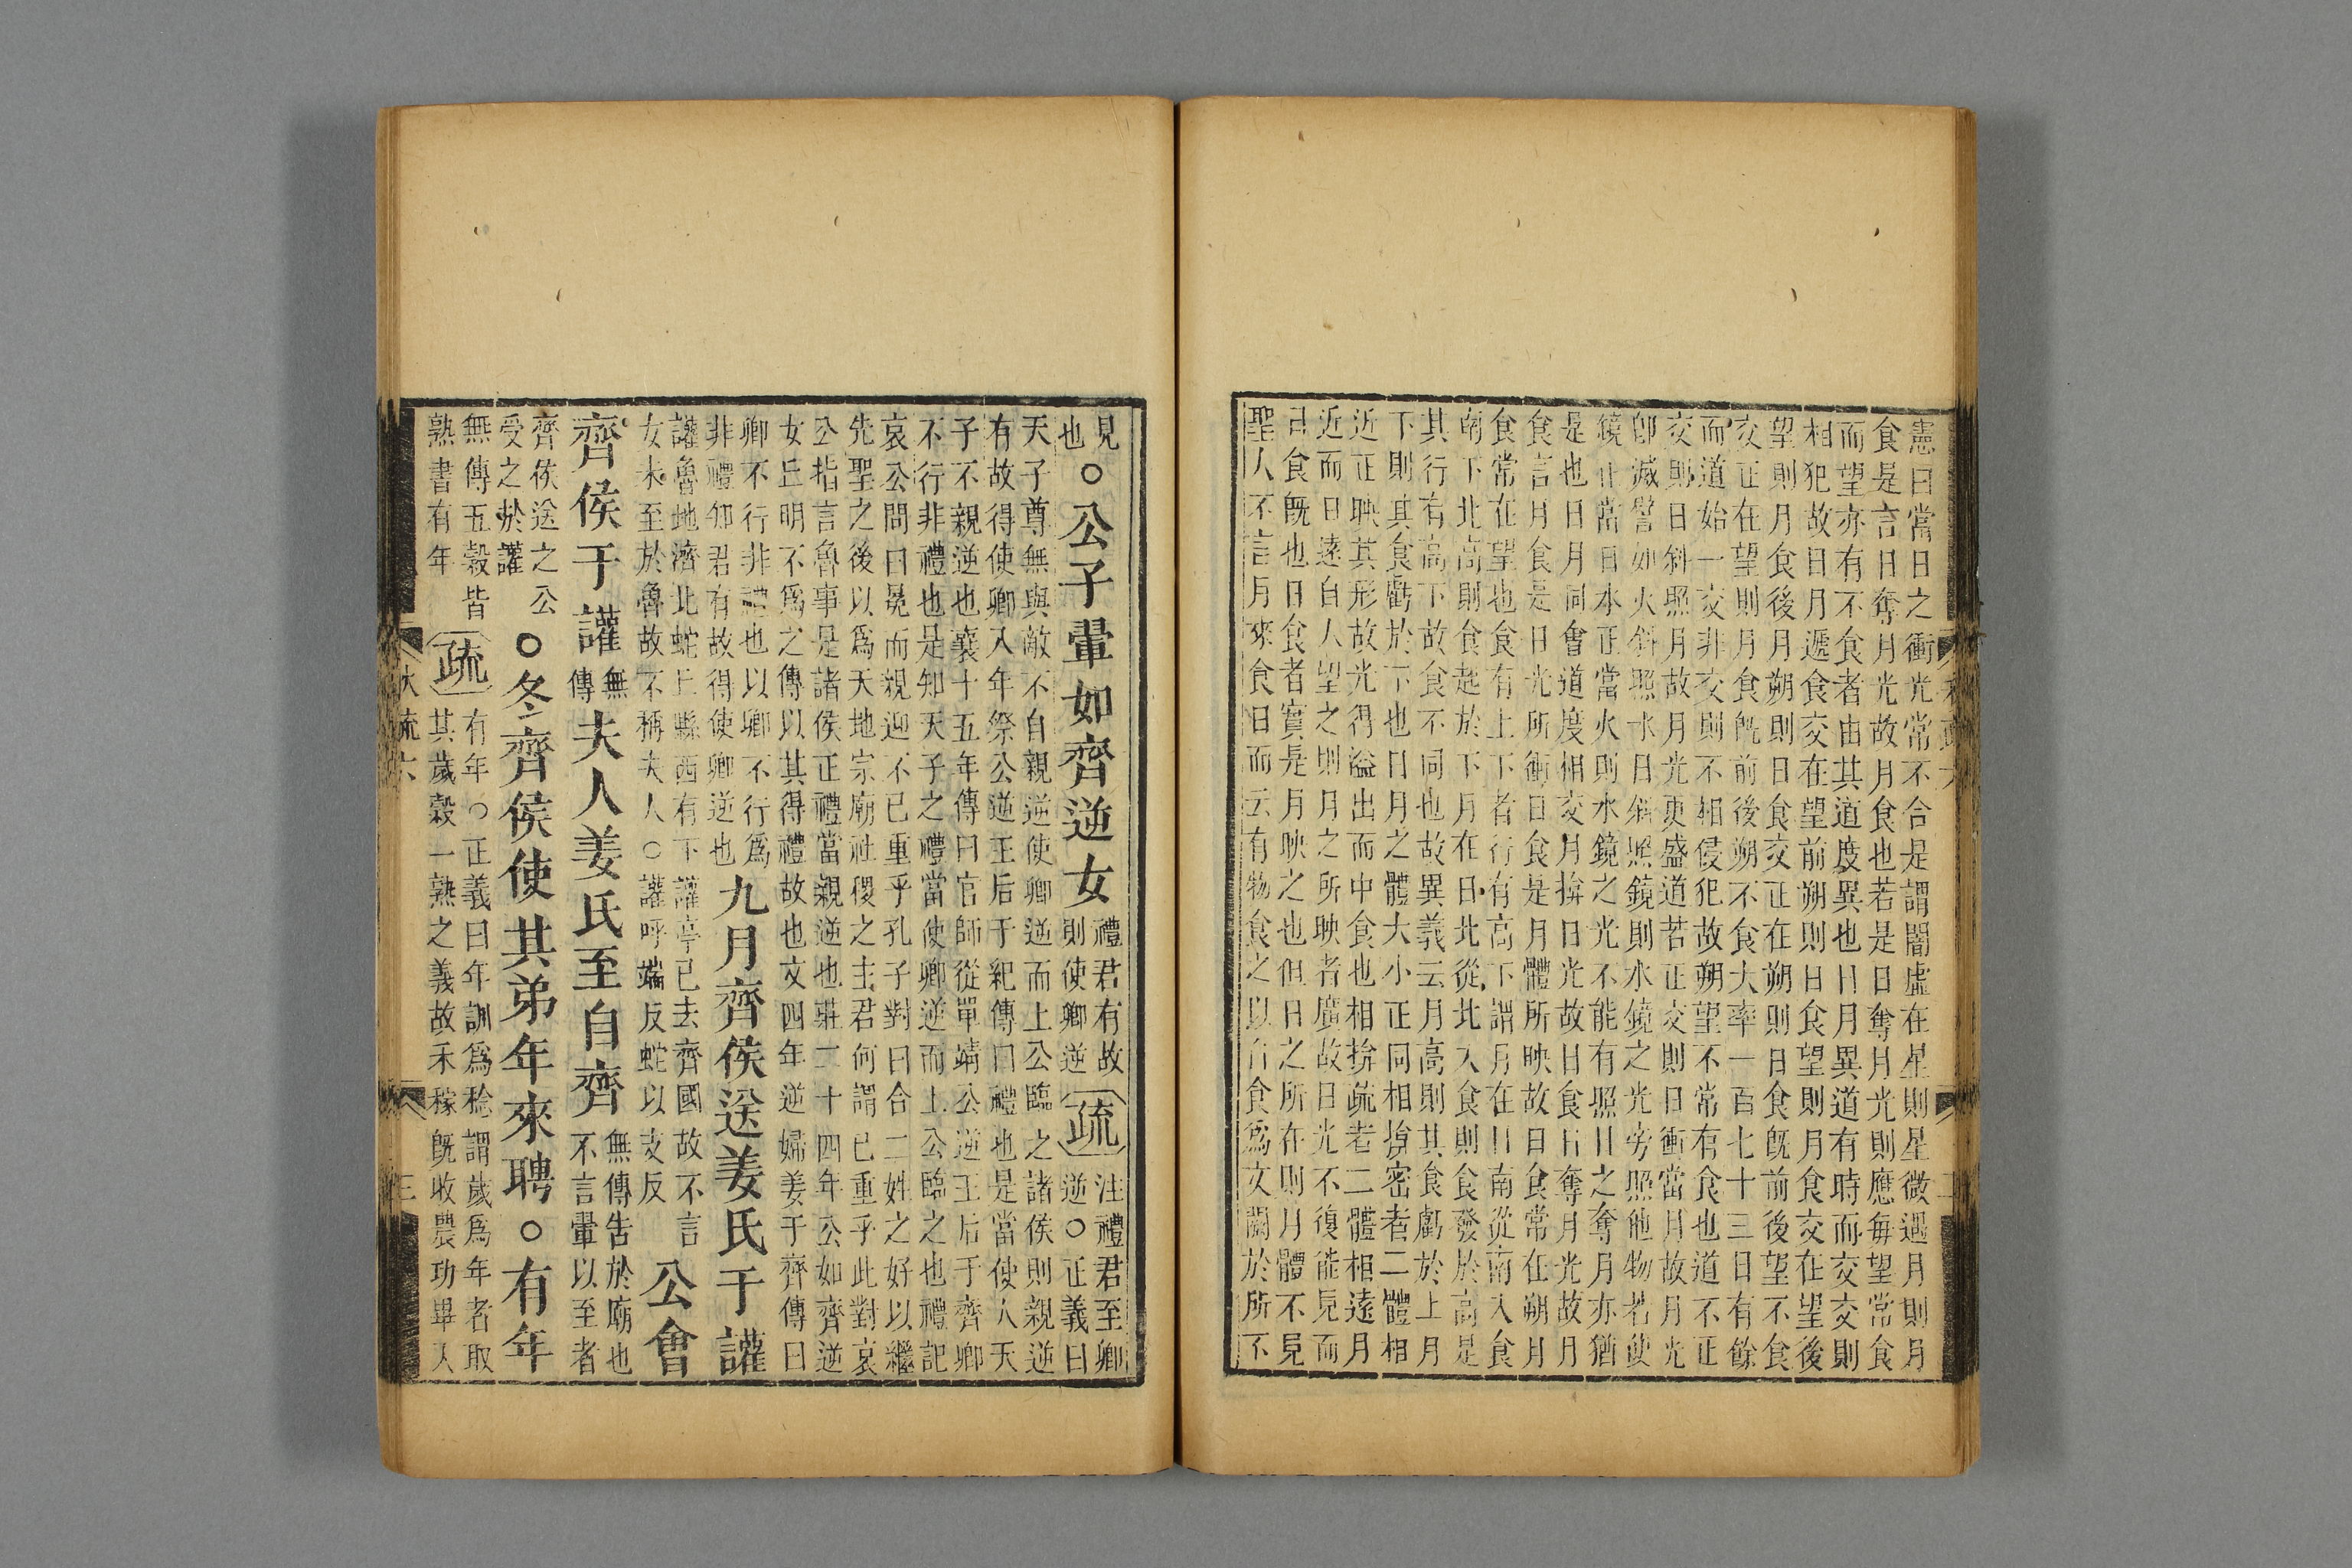 憲曰當日之衝光常不合是謂闇虛在星則星微遇月則月
食是言日奪月光故月食也若是日奪月光則應每望常食
而望亦有不食者由其道度異也日月異道有時而交交則
相犯故日月遞食交在望前朔則日食望則月食交在望後
望則月食後月朔則日食交正在朔則日食旣前後望不食
交正在望則月食旣前後朔不食大率一百七十三日有餘
而道始一交非交則不相侵犯故朔望不常有食也道不正
交則日斜照月故月光更盛道若正交則日衝當月故月光
卽滅譬如火斜照水日斜照鏡則水鏡之光旁照他物若使
鏡正當日水正當火則水鏡之光不能有照日之奪月亦猶
是也日月同會道度相交月揜日光故日食日奪月光故月
食言月食是日光所衝日食是月體所映故日食常在朔月
食常在望也食有上下者行有高下謂月在日南從南入食
南下北高則食起於下月在日北從北入食則食發於高是
其行有高下故食不同也故異義云月高則其食虧於上月
下則其食虧於下也日月之體大小正同相揜密者二體相
近正映其形故光得溢出而中食也相揜疏者二體相遠月
近而日遠自人望之則月之所映者廣故日光不復能見而
日食旣也日食者實是月映之也但日之所在則月體不見
聖人不言月來食日而云有物食之以自食爲文闕於所不
見
也○公子翬如齊逆女禮君有故
則使卿逆疏注禮君至卿
逆○正義曰
天子尊無與敵不自親逆使卿逆而上公臨之諸侯則親逆
有故得使卿八年祭公逆王后于紀傳曰禮也是當使人天
子不親逆也襄十五年傳曰官師從單靖公逆王后于齊卿
不行非禮也是知天子之禮當使卿逆而上公臨之也禮記
哀公問曰冕而親迎不已重乎孔子對曰合二姓之好以繼
先聖之後以爲天地宗廟社稷之主君何謂已重乎此對哀
公指言魯事是諸侯正禮當親逆也莊二十四年公如齊逆
女丘明不爲之傳以其得禮故也文四年逆婦姜于齊傳曰
卿不行非禮也以卿不行爲
非禮卽君有故得使卿逆也九月齊侯送姜氏于讙
讙魯地濟北蛇丘縣西有下讙亭已去齊國故不言
女未至於魯故不稱夫人○讙呼端反蛇以支反公會
齊侯于讙無
傳夫人姜氏至自齊無傳告於廟也
不言翬以至者
齊侯送之公
受之於讙○冬齊侯使其弟年來聘○有年
無傳五穀皆
熟書有年疏有年○正義曰年訓爲稔謂歲爲年者取
其歲穀一熟之義故禾稼旣收農功畢入